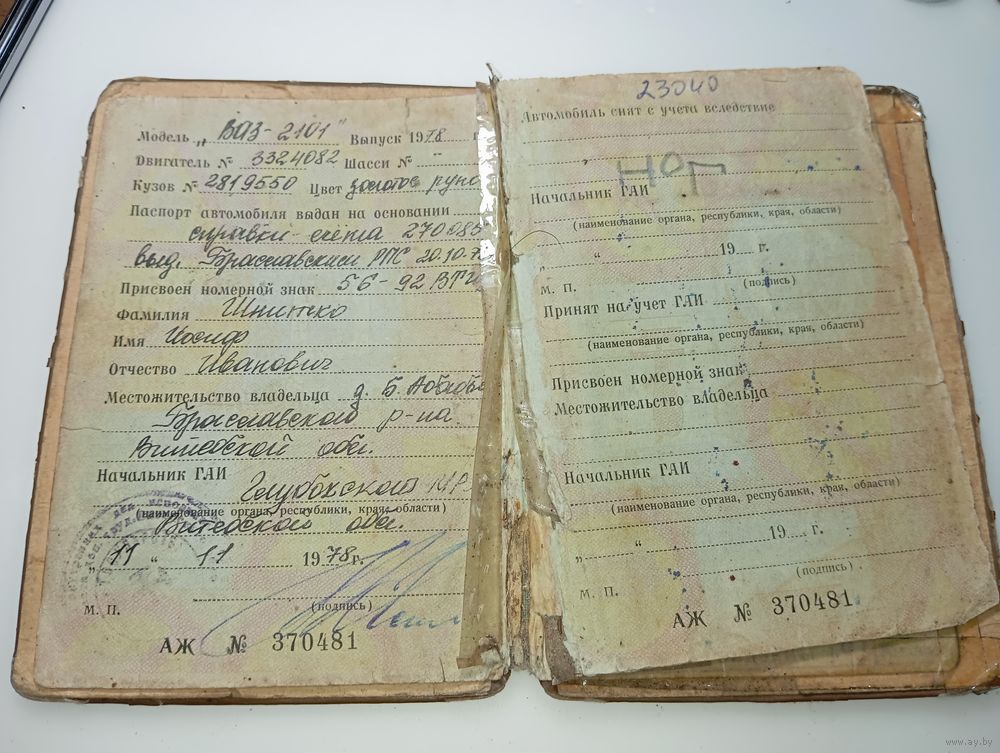 Модель „ВАЗ-2101" Выпуск 1978 г
Двигатель № 3324082 Шасси № –
Кузов № 2819550 Цвет золотое руно
Паспорт автомобиля выдан на основании
справки-счета 270085
выд. Браславский РПС 20.10.7
Присвоен номерной знак 56-92 ВТ
Фамилия Шнитко
Имя Иосиф
Отчество Иванович
Местожительство владельца д. Б.
Браславского р-на.
Витебской обл.
Начальник ГАИ
Глубокского
(наименование органа, республики, края, области)
Витебской обл.
„11" 11 1978 г.
(подпись)
М. П.
АЖ № 370481
23040
Автомобиль снят с учета вследствие
Начальник ГАИ
(наименование органа, республики, края, области)
„ " 19 г.
М. П. (подпись)
Принят на учет ГАИ
(наименование органа, республики, края, области)
Присвоен номерной знак
Местожительство владельца
Начальник ГАИ
(наименование органа, республики, края, области)
„ " 19 г.
(подпись)
М. П.
АЖ № 370481
www.ay.by